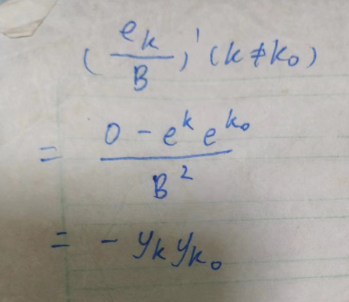 (e_k/B)' (k≠k₀)
= (0 - e^k e^{k₀})/B²
= - y_k y_{k₀}